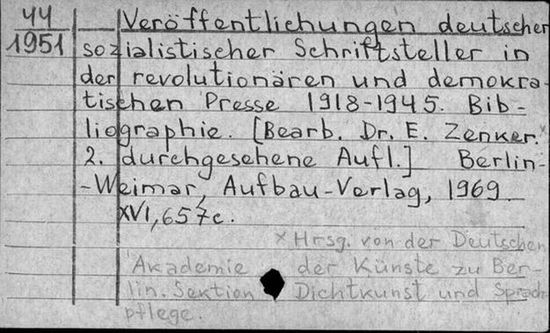 44
1951
Veröffentlichungen deutscher
sozialistischer Schriftsteller in
der revolutionären und demokra-
tischen Presse 1918-1945. Bib-
liographie. [Bearb. Dr. E. Zenker.x
2. durchgesehene Aufl.] Berlin-
-Weimar, Aufbau-Verlag, 1969.
XVI, 657c.
x Hrsg. von der Deutschen
Akademie der Künste zu Ber-
lin. Sektion Dichtkunst und Sprach-
pflege.